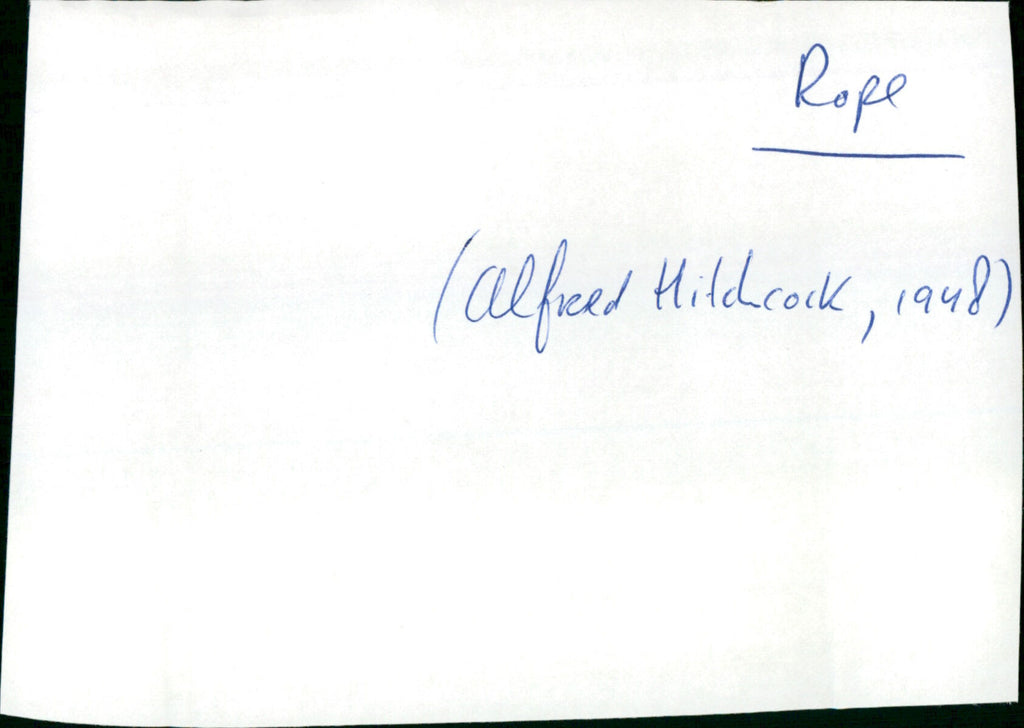 Rope
(Alfred Hitchcock, 1948)